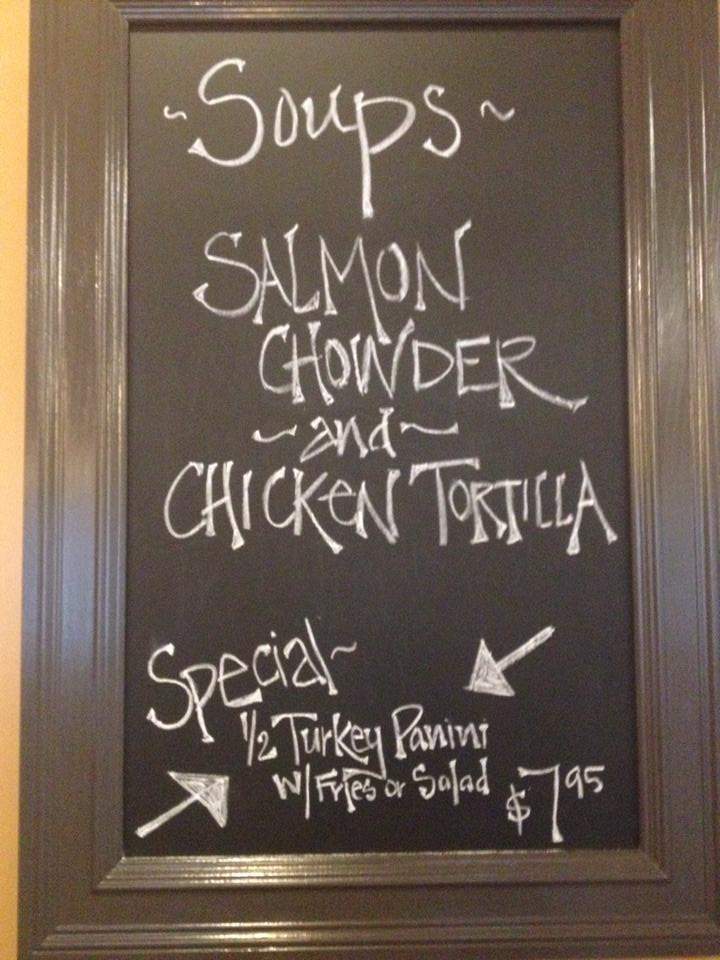 ~Soups~
SALMON
CHOWDER
~and~
CHICKEN TORTILLA
Special~
1/2 Turkey Panini
w/Fries or Salad $7.95